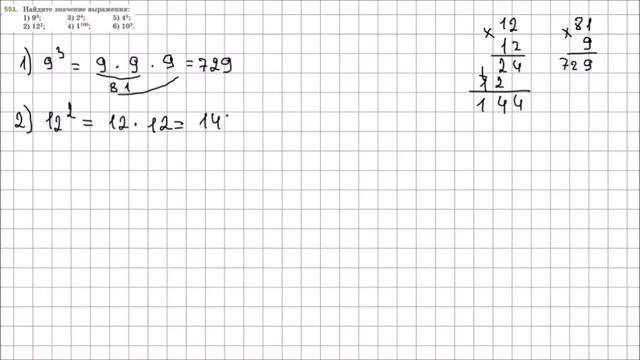 551. Найдите значение выражения:
1) 9³; 3) 2⁴; 5) 4³;
2) 12²; 4) 1¹⁰⁰; 6) 10³.
1) 9³ = 9 · 9 · 9 = 729
81
2) 12² = 12 · 12 = 14
12
× 12
24
1
12
144
81
× 9
729